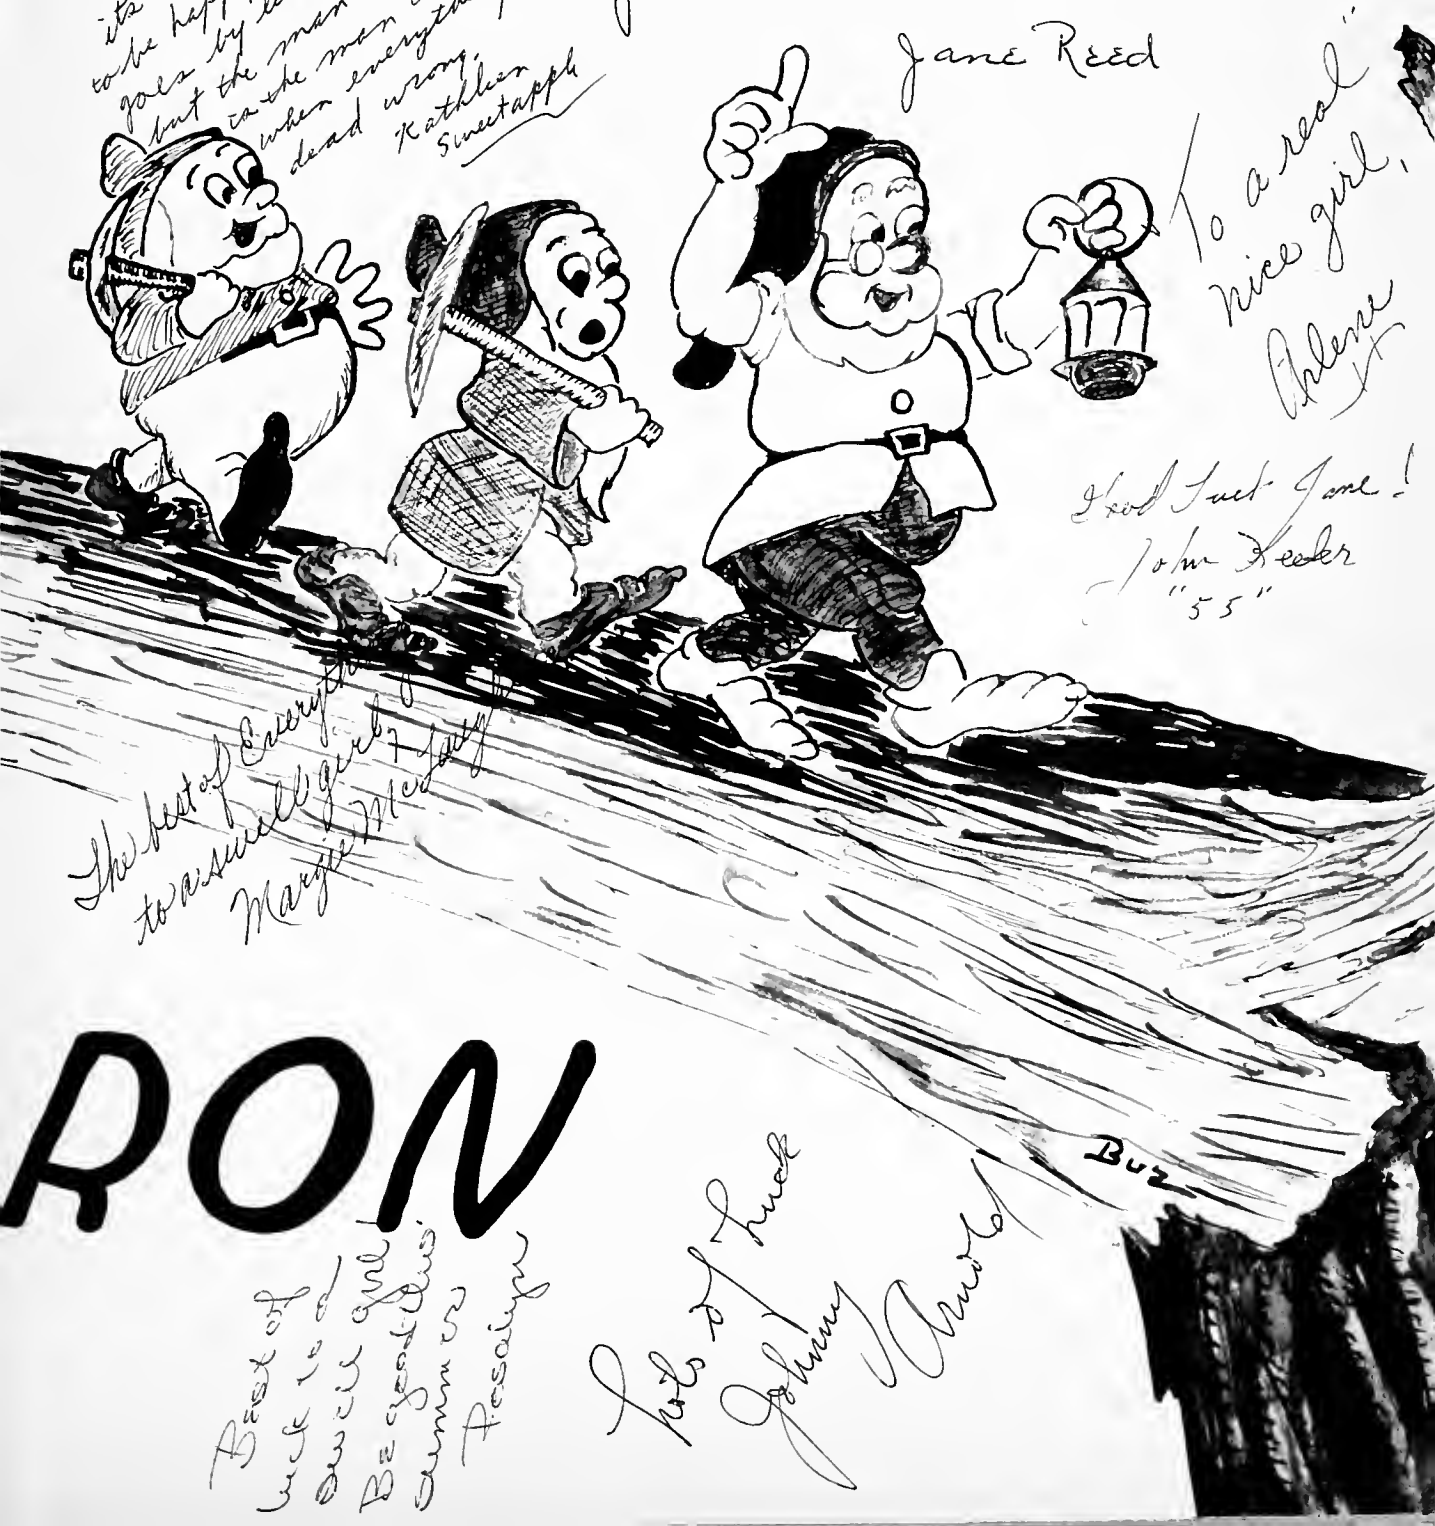 its
to be happ
goes by
but the man
is the man
when everyth
dead wrong.
Kathleen
Sweetapple
Jane Reed
To a real
nice girl,
Arlene
Good Luck Jane!
John
"55"
The best of Everyth
to a swell girl,
Margie McLaugh
RON
Buz
Best of
luck to a
swell girl
Be good this
summer
Rosalyn
Lots of Luck
Johnny
Arnold